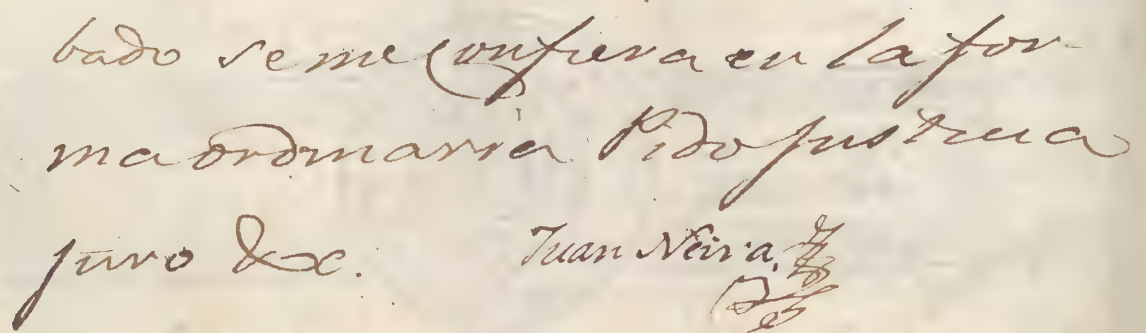 bado se me Confiera en la for-
ma ordinaria. Pido Justicia
juro &c. Juan Neira.